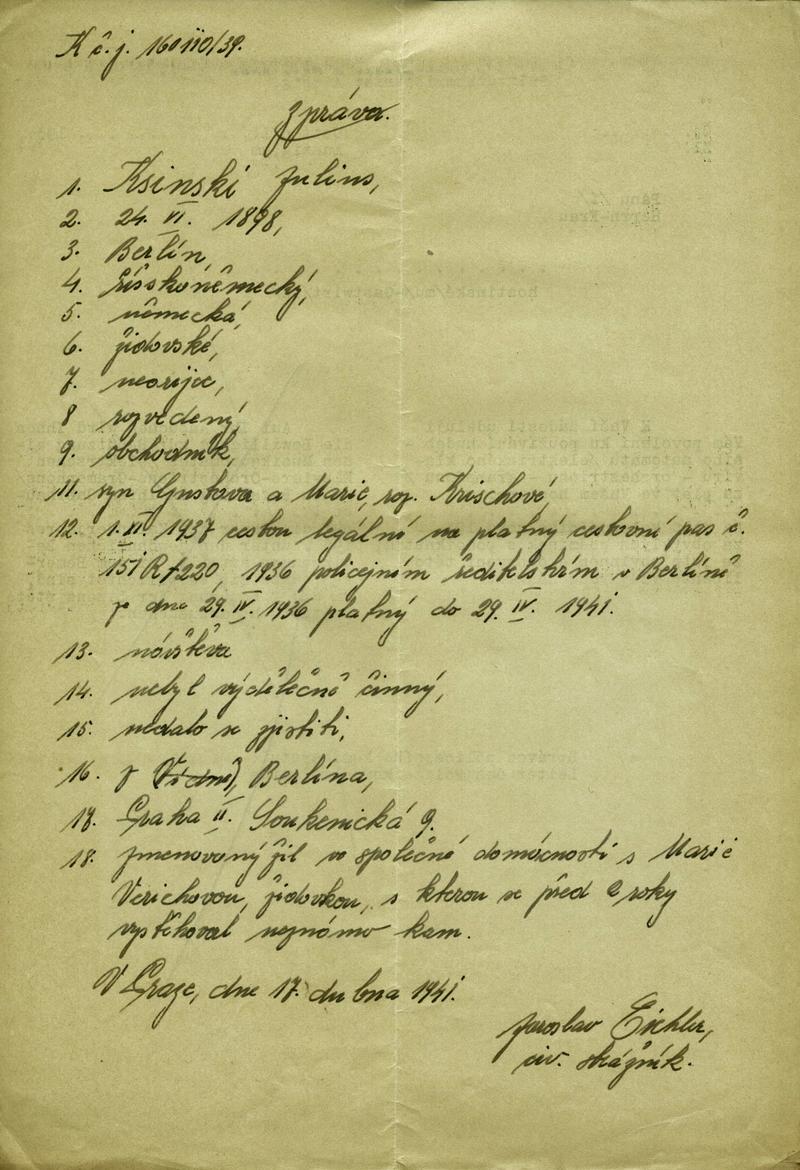 K č. j. 160110/39.
Zpráva.
1. Ksinski Julius,
2. 24. VI. 1898,
3. Berlín,
4. říšskoněmecký,
5. německá,
6. židovské,
7. nearijec,
8 rozvedený,
9. obchodník,
11. syn Gustava a Marie, roz. Krischové,
12. 1. VI. 1937 cestou legální na platný cestovní pas č.
151 R 1220, 1936 policejním ředitelstvím v Berlíně
ze dne 29. IV. 1936 platný do 29. IV. 1941.
13. návštěva
14. nebyl výdělečně činný,
15. nedalo se zjistiti,
16. z Berlína,
17. Praha II. Soukenická 9.
18. jmenovaný žil ve společné domácnosti s Marií
Verichovou, židovkou, s kterou se před 2 roky
vystěhoval neznámo kam.
V Praze, dne 17. dubna 1941.
Jaroslav Eichler,
civ. strážník.